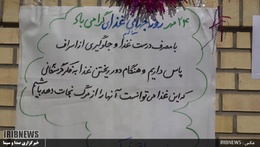 ۲۴ مهر روز جهانی غذا گرامی باد
با مصرف درست غذا و جلوگیری از اسراف
پاس داریم و هنگام دور ریختن غذا به فکر گرسنگانی
که این غذا می توانست آنها را از مرگ نجات دهد باشیم
IRIBNEWS
خبرگزاری صدا و سیما
عکس: IRIBNEWS